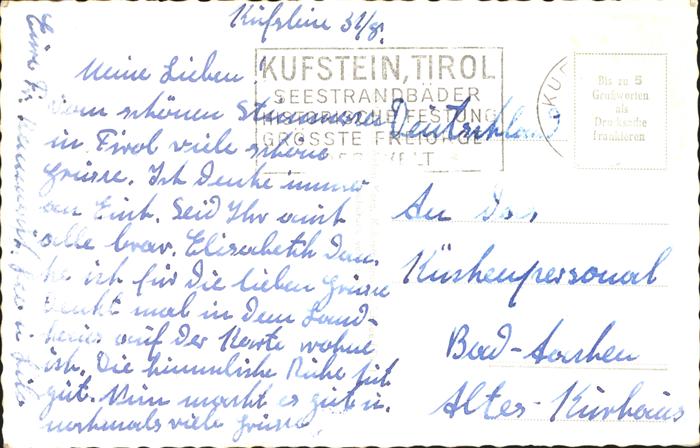 Kufstein 31/8.
Meine Lieben!
Vom schönen
in Tirol viele schöne
Grüsse. Ich denke immer
an Euch. Seid Ihr auch
alle brav. Elisabeth Dan-
ke ich für die lieben Grüsse
Denkt mal in dem Land-
haus auf der Karte wohne
ich. Die himmlische Ruhe tut
gut. Nun macht es gut u.
nochmals viele Grüsse
KUFSTEIN, TIROL
SEESTRANDBÄDER
HISTORISCHE FESTUNG
GRÖSSTE FREIORGEL
DER WELT
KU
Bis zu 5
Grußworten
als
Drucksache
frankieren
Deutschland
An Das
Küchenpersonal
Bad-Aachen
Altes-Kurhaus